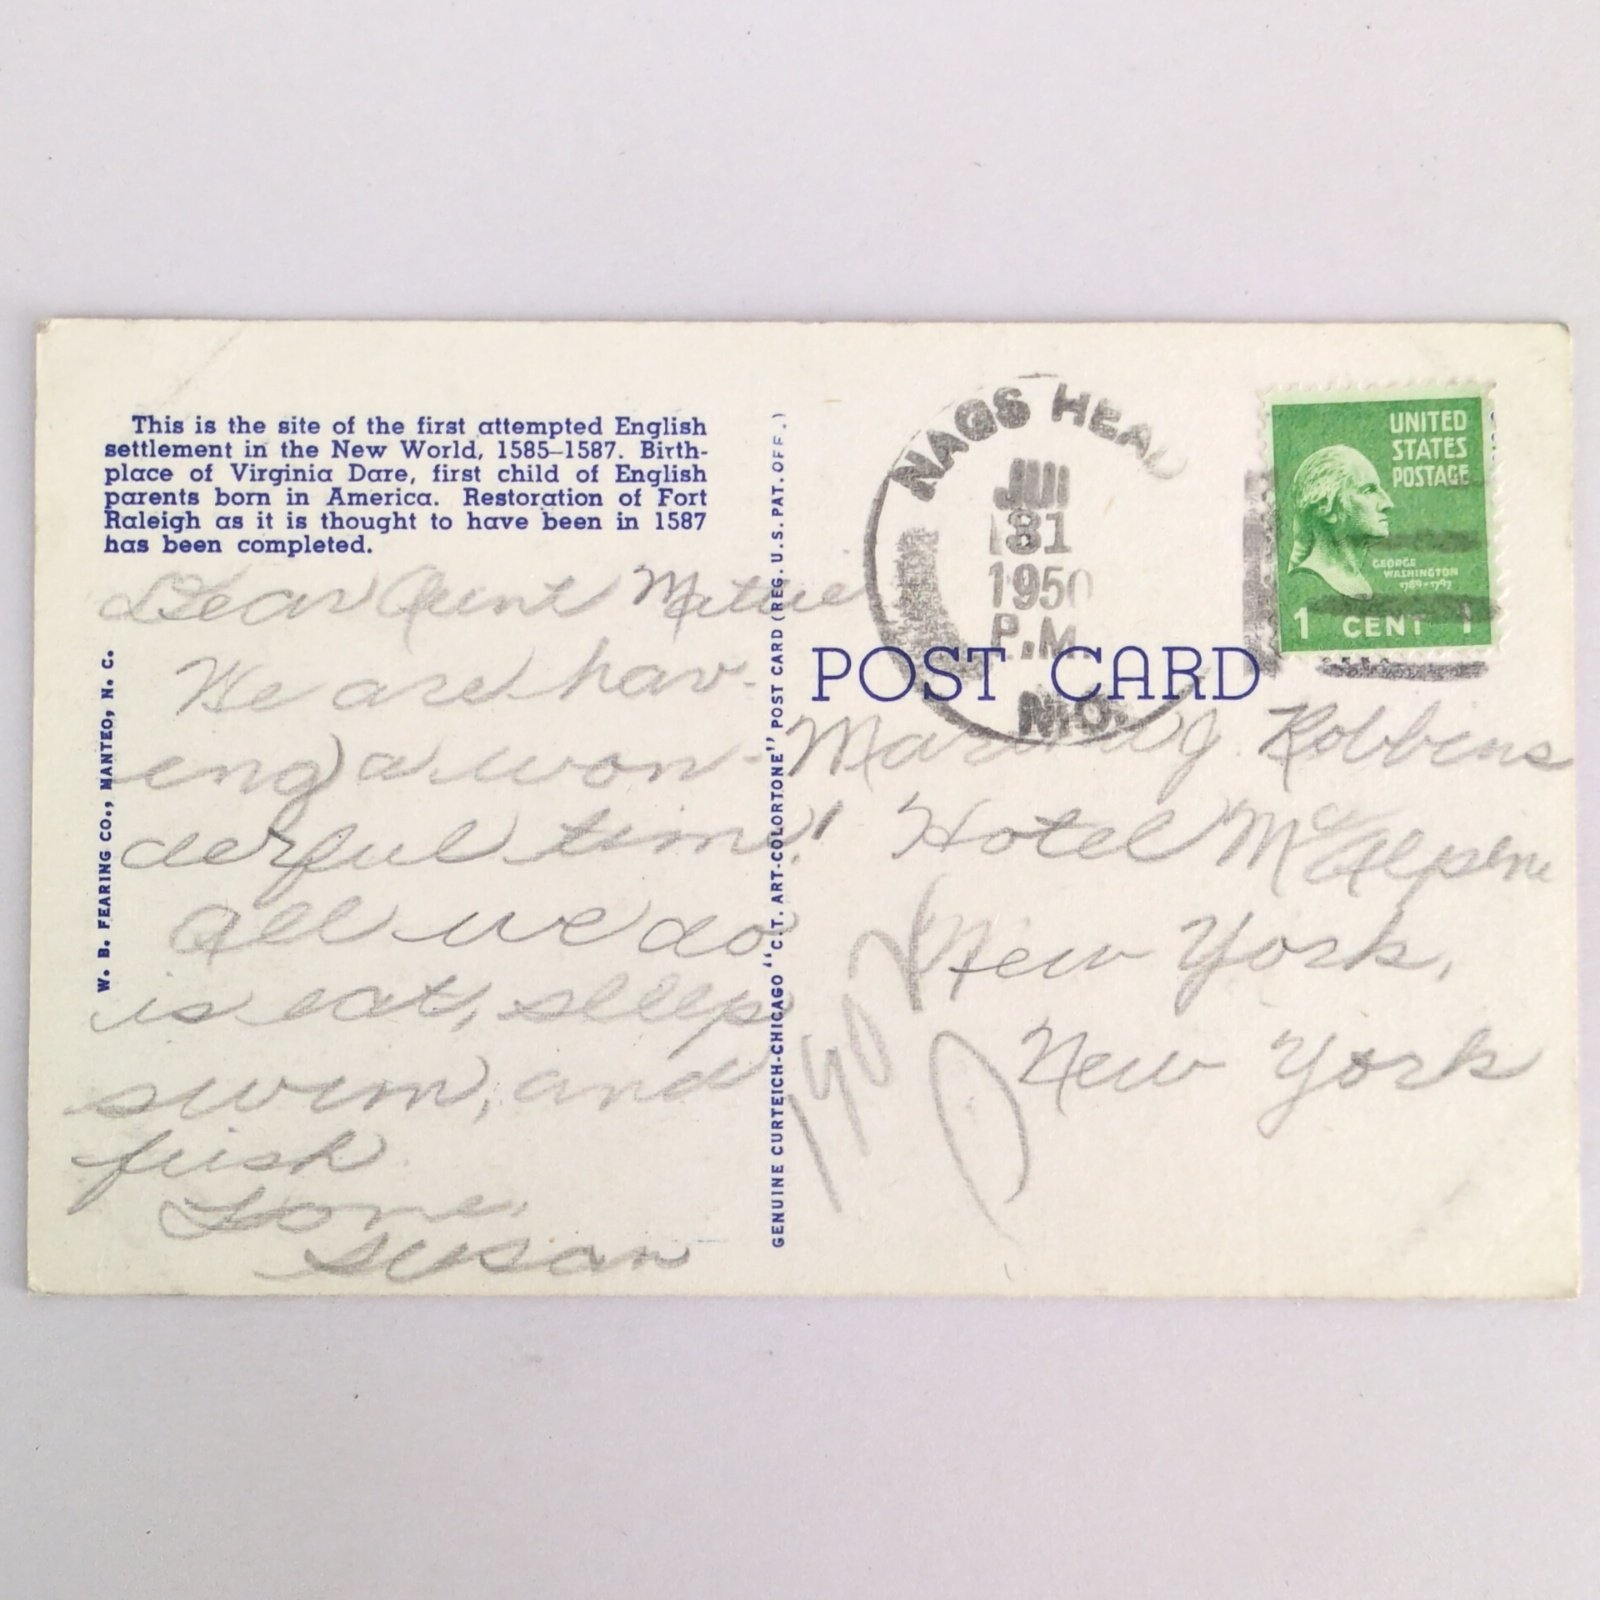 This is the site of the first attempted English
settlement in the New World, 1585–1587. Birth-
place of Virginia Dare, first child of English
parents born in America. Restoration of Fort
Raleigh as it is thought to have been in 1587
has been completed.
Dear Aunt Mattie
We are hav-
ing a won-
derful time!
All we do
is eat, sleep
swim, and
fish
Love,
Susan
W. B. FEARING CO., MANTEO, N. C.
GENUINE CURTEICH-CHICAGO "C.T. ART-COLORTONE" POST CARD (REG. U.S. PAT. OFF.)
NAGS HEAD
JUL
31
1950
P.M.
N.C.
UNITED
STATES
POSTAGE
GEORGE
WASHINGTON
1789-1797
1 CENT 1
POST CARD
J. Robbins
Hotel McAlpine
New York,
New York